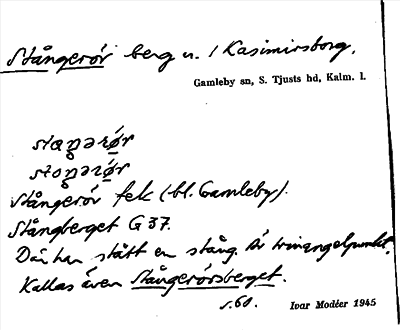 Stångerör berg n. / Kasimirsborg,
Gamleby sn, S. Tjusts hd, Kalm. l.
staŋərǿr
stoŋərǿr
Stångerör fek (bl. Gamleby).
Stångberget G 37.
Där har stått en stång. Är triangelpunkt.
Kallas även Stångerörsberget.
s. 60. Ivar Modéer 1945